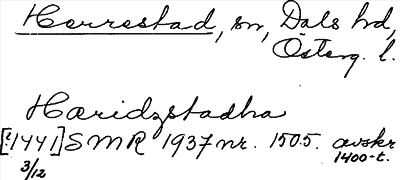 Herrestad, sn, Dals hd,
Österg. l.
Haridzstadha
[?1441] SMR 1937 nr. 1505. avskr
3/12 1400-t.